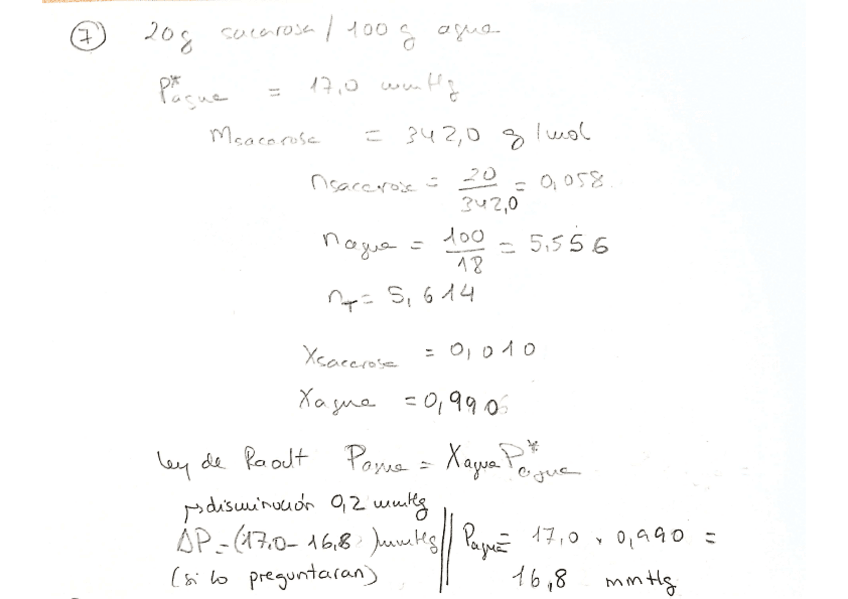 7 20g sacarosa / 100 g agua
P*agua = 17,0 mmHg
Msacarosa = 342,0 g/mol
nsacarosa = 20/342,0 = 0,058
nagua = 100/18 = 5,556
nT = 5,614
Xsacarosa = 0,010
Xagua = 0,990
ley de Raoult Pagua = Xagua P*agua
↳ disminución 0,2 mmHg
ΔP = (17,0 - 16,8) mmHg || Pagua = 17,0 × 0,990 =
(si lo preguntaran) 16,8 mmHg